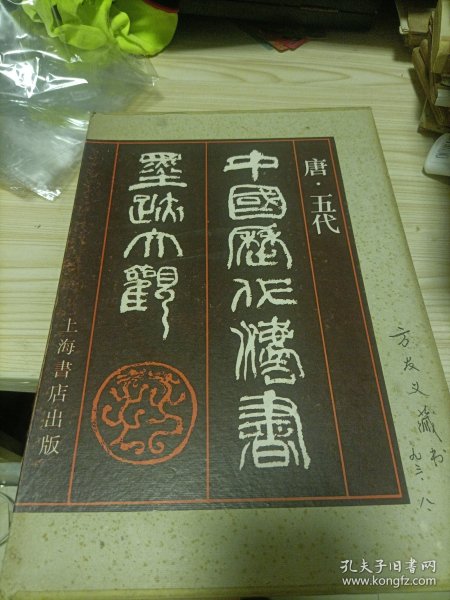 唐·五代
中國歷代法書
墨跡大觀
上海書店出版
方友义藏书
九三.八.
孔夫子旧书网
www.kongfz.com